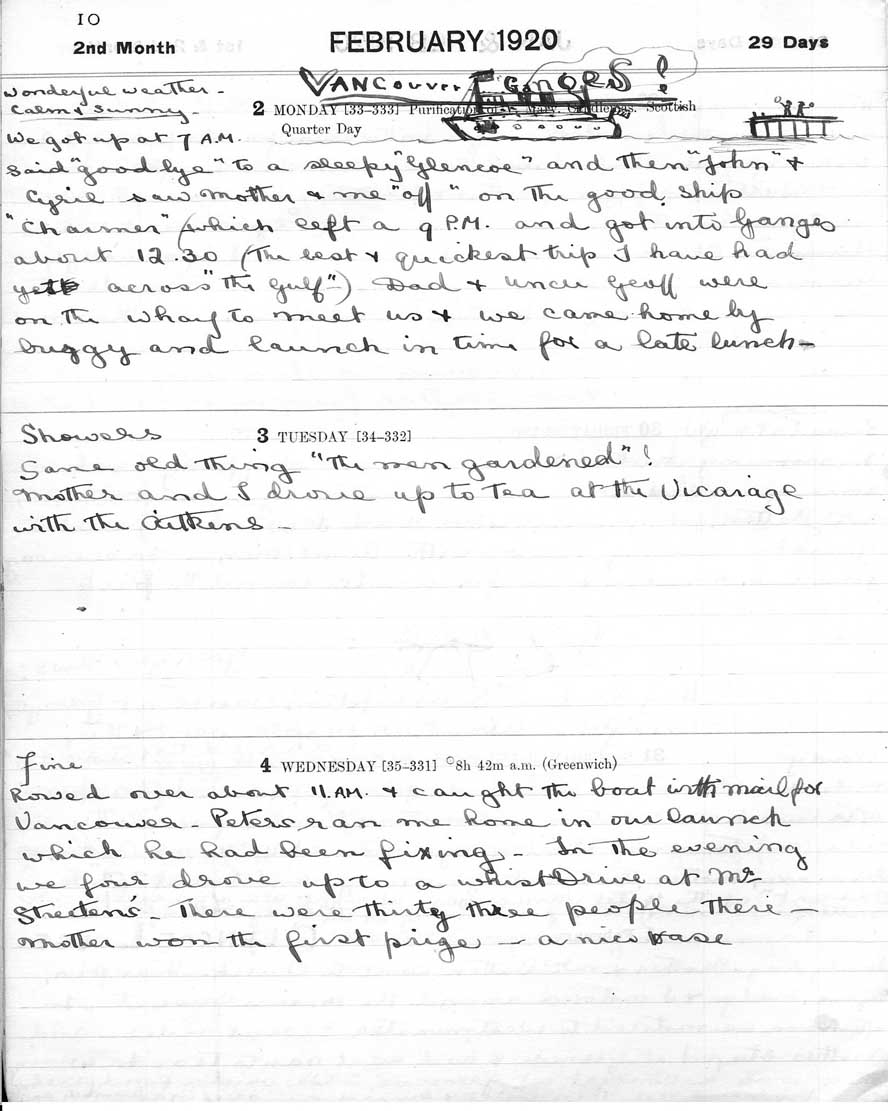 10
2nd Month FEBRUARY 1920 29 Days
VANCOUVER GANGES!
Wonderful weather -
Calm & sunny.
2 MONDAY [33-333] Purification Mary. Candlemas. Scottish
Quarter Day
We got up at 7 A.M.
Said "good bye" to a sleepy "Glencoe" and then "John" &
Cyril saw mother & me "off" on the good ship
"Charmer" (which left a 9 P.M. and got into Ganges
about 12.30 (The best & quickest trip I have had
yet across "the Gulf"-) Dad & uncle Geoff were
on the wharf to meet us & we came home by
buggy and launch in time for a late lunch -
Showers 3 TUESDAY [34-332]
Same old thing "the men gardened"!
Mother and I drove up to Tea at the Vicarage
with the Aitkens -
Fine 4 WEDNESDAY [35-331] 8h 42m a.m. (Greenwich)
Rowed over about 11 A.M. & caught the boat with mail for
Vancouver - Peters ran me home in our launch
which he had been fixing - In the evening
we four drove up to a whist Drive at Mr
Streeten's - There were thirty three people there -
Mother won the first prize - a nice vase